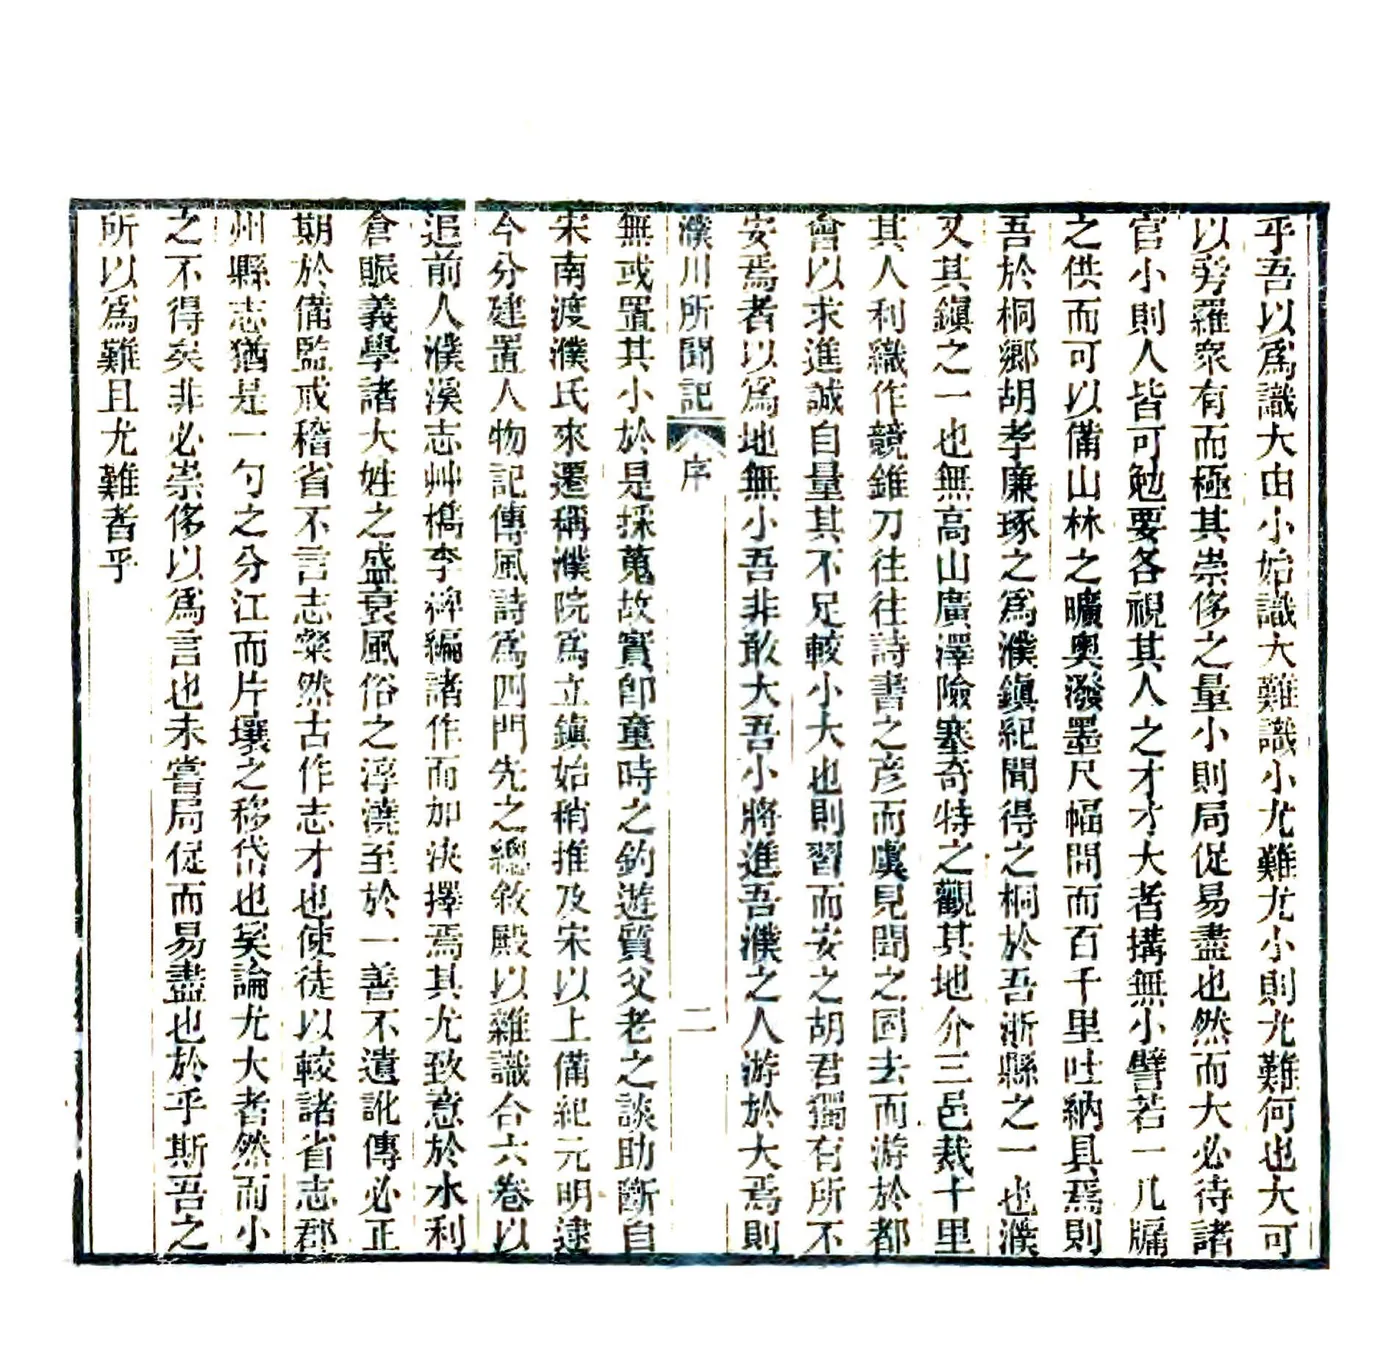 乎吾以爲識大由小始識大難識小尤難尤小則尤難何也大可
以旁羅衆有而極其崇侈之量小則局促易盡也然而大必待諸
官小則人皆可勉要各視其人之才才大者搆無小譬若一几牖
之供而可以備山林之曠奧潑墨尺幅間而百千里吐納具焉則
吾於桐鄉胡孝廉琢之爲濮鎭紀聞得之桐於吾浙縣之一也濮
又其鎭之一也無高山廣澤險塞奇特之觀其地介三邑裁十里
其人利織作競錐刀往往詩書之彥而虞見聞之固去而游於都
會以求進誠自量其不足較小大也則習而安之胡君獨有所不
安焉者以爲地無小吾非敢大吾小將進吾濮之人游於大焉則
濮川所聞記 序 二
無或置其小於是採蒐故實卽童時之釣遊質父老之談助斷自
宋南渡濮氏來遷稱濮院爲立鎭始稍推及宋以上備紀元明逮
今分建置人物記傳風詩爲四門先之總敘殿以雜識合六卷以
追前人濮溪志艸檇李裨編諸作而加決擇焉其尤致意於水利
倉賑義學諸大姓之盛衰風俗之淳澆至於一善不遺訛傳必正
期於備監戒稽省不言志粲然古作志才也使徒以較諸省志郡
州縣志猶是一勺之分江而片壤之移岱也矣論尤大者然而小
之不得矣非必崇侈以爲言也未嘗局促而易盡也於乎斯吾之
所以爲難且尤難者乎